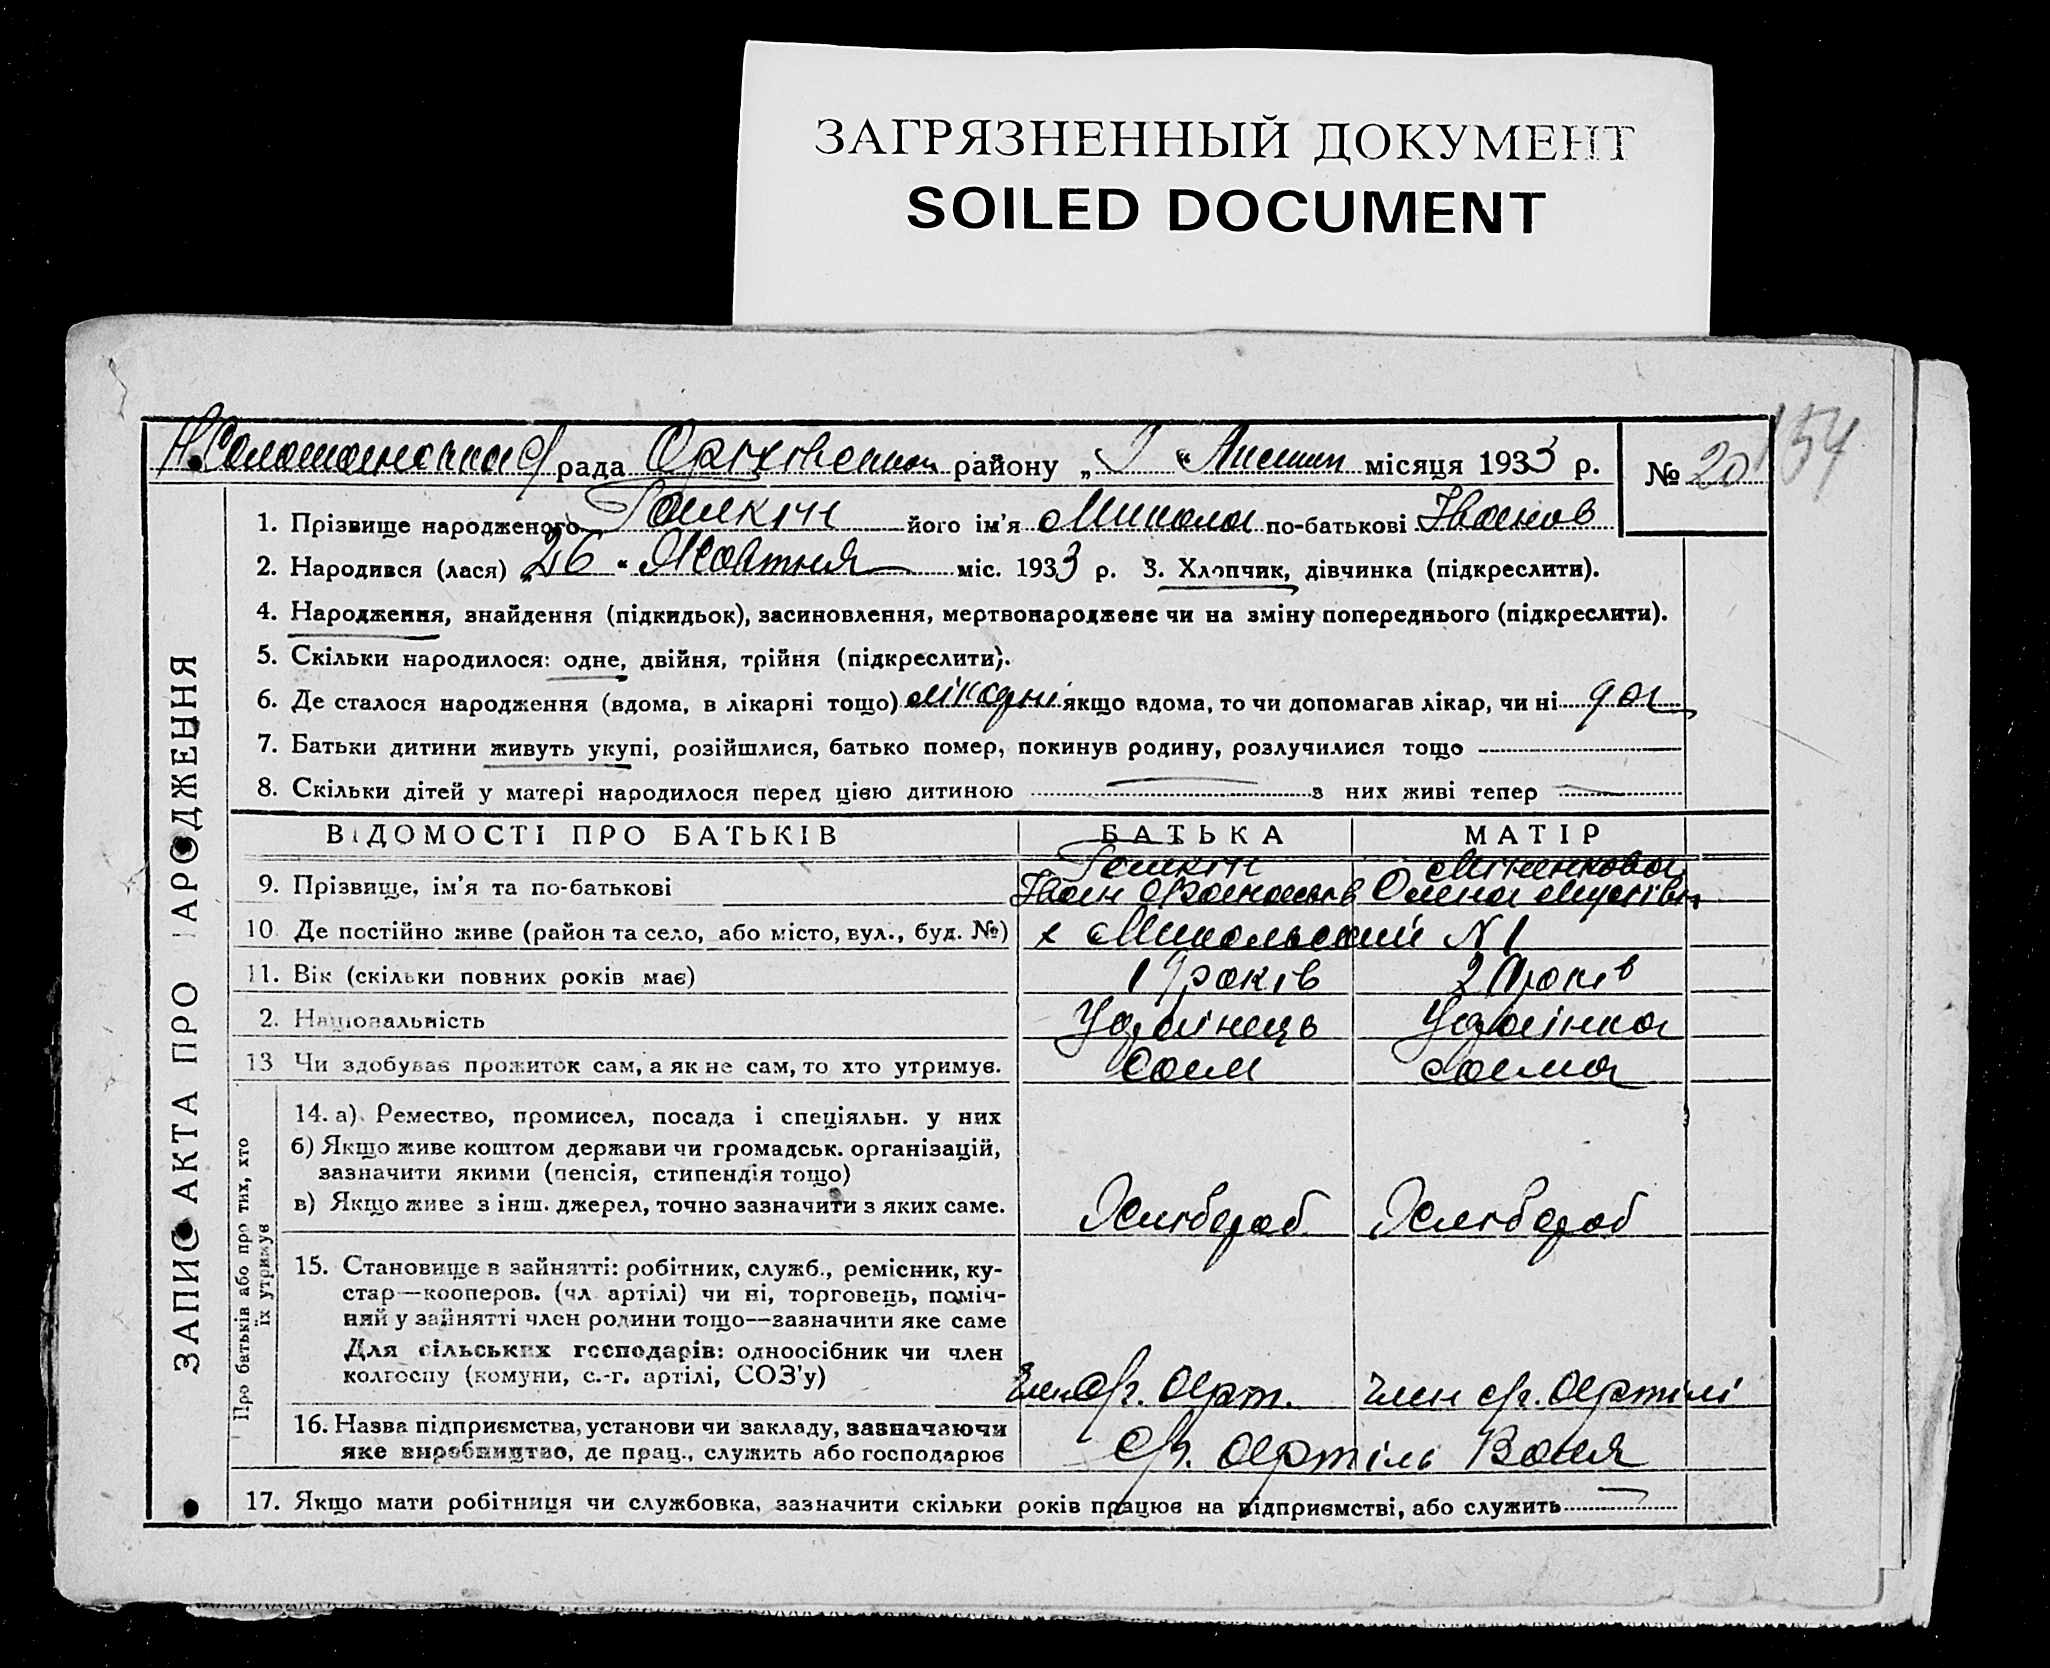 ЗАГРЯЗНЕННЫЙ ДОКУМЕНТ
SOILED DOCUMENT
рада Оріхівськом району „ “ Листоп місяця 1933 р. № 20 154
1. Прізвище народженого Гамкін його ім’я Микола по-батькові Іванов
2. Народився (лася) „26“ Жовтня міс. 1933 р. 3. Хлопчик, дівчинка (підкреслити).
4. Народження, знайдення (підкидьок), засиновлення, мертвонароджене чи на зміну попереднього (підкреслити).
5. Скільки народилося: одне, двійня, трійня (підкреслити).
6. Де сталося народження (вдома, в лікарні тощо) лікарні якщо вдома, то чи допомагав лікар, чи ні да
7. Батьки дитини живуть укупі, розійшлися, батько помер, покинув родину, розлучилися тощо
8. Скільки дітей у матері народилося перед цією дитиною — з них живі тепер —
ЗАПИС АКТА ПРО НАРОДЖЕННЯ
ВІДОМОСТІ ПРО БАТЬКІВ БАТЬКА МАТІР
9. Прізвище, ім’я та по-батькові Гамкін Іван Фанасьів Міненкова Олена
10. Де постійно живе (район та село, або місто, вул., буд. №) х Микольський N 1
11. Вік (скільки повних років має) 19 років років
12. Національність Українець Українка
13. Чи здобуває прожиток сам, а як не сам, то хто утримує. Сам сама
Про батьків або про тих, хто
їх утримує
14. а) Ремество, промисел, посада і спеціяльн. у них
б) Якщо живе коштом держави чи громадськ. організацій,
зазначити якими (пенсія, стипендія тощо)
в) Якщо живе з інш. джерел, точно зазначити з яких саме. Хлібороб Хлібороб
15. Становище в зайнятті: робітник, служб., ремісник, ку-
стар—кооперов. (чл. артілі) чи ні, торговець, поміч-
ний у зайнятті член родини тощо—зазначити яке саме
Для сільських господарів: одноосібник чи член
колгоспу (комуни, с.-г. артілі, СОЗ’у) Член с/г. Арт. Член с/г. Артілі
16. Назва підприємства, установи чи закладу, зазначаючи
яке виробництво, де прац., служить або господарює с/г. Артіль Воля
17. Якщо мати робітниця чи службовка, зазначити скільки років працює на підприємстві, або служить —